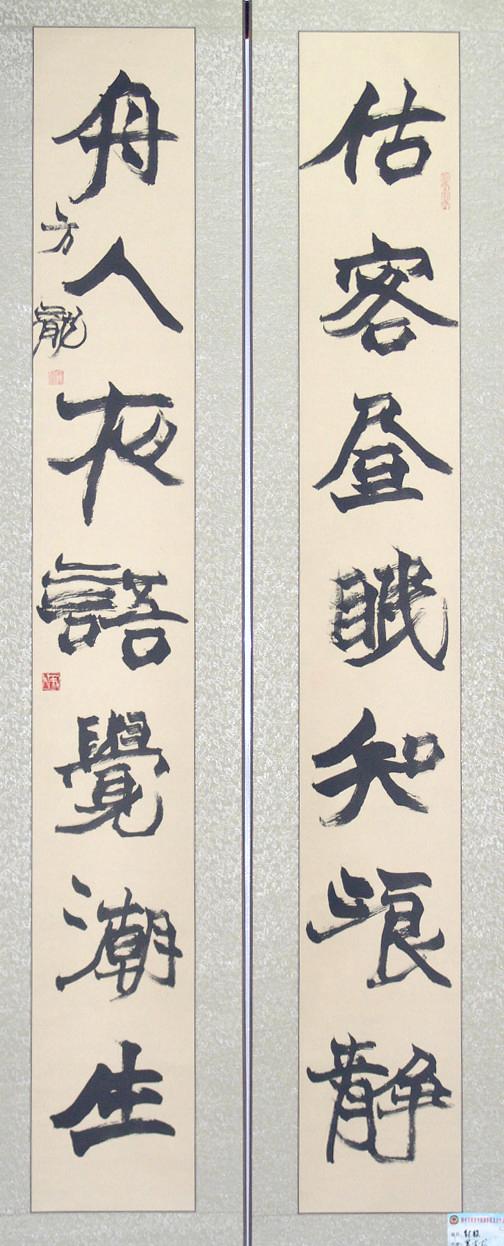 估客昼眠知浪静
舟人夜語覺潮生
方龍